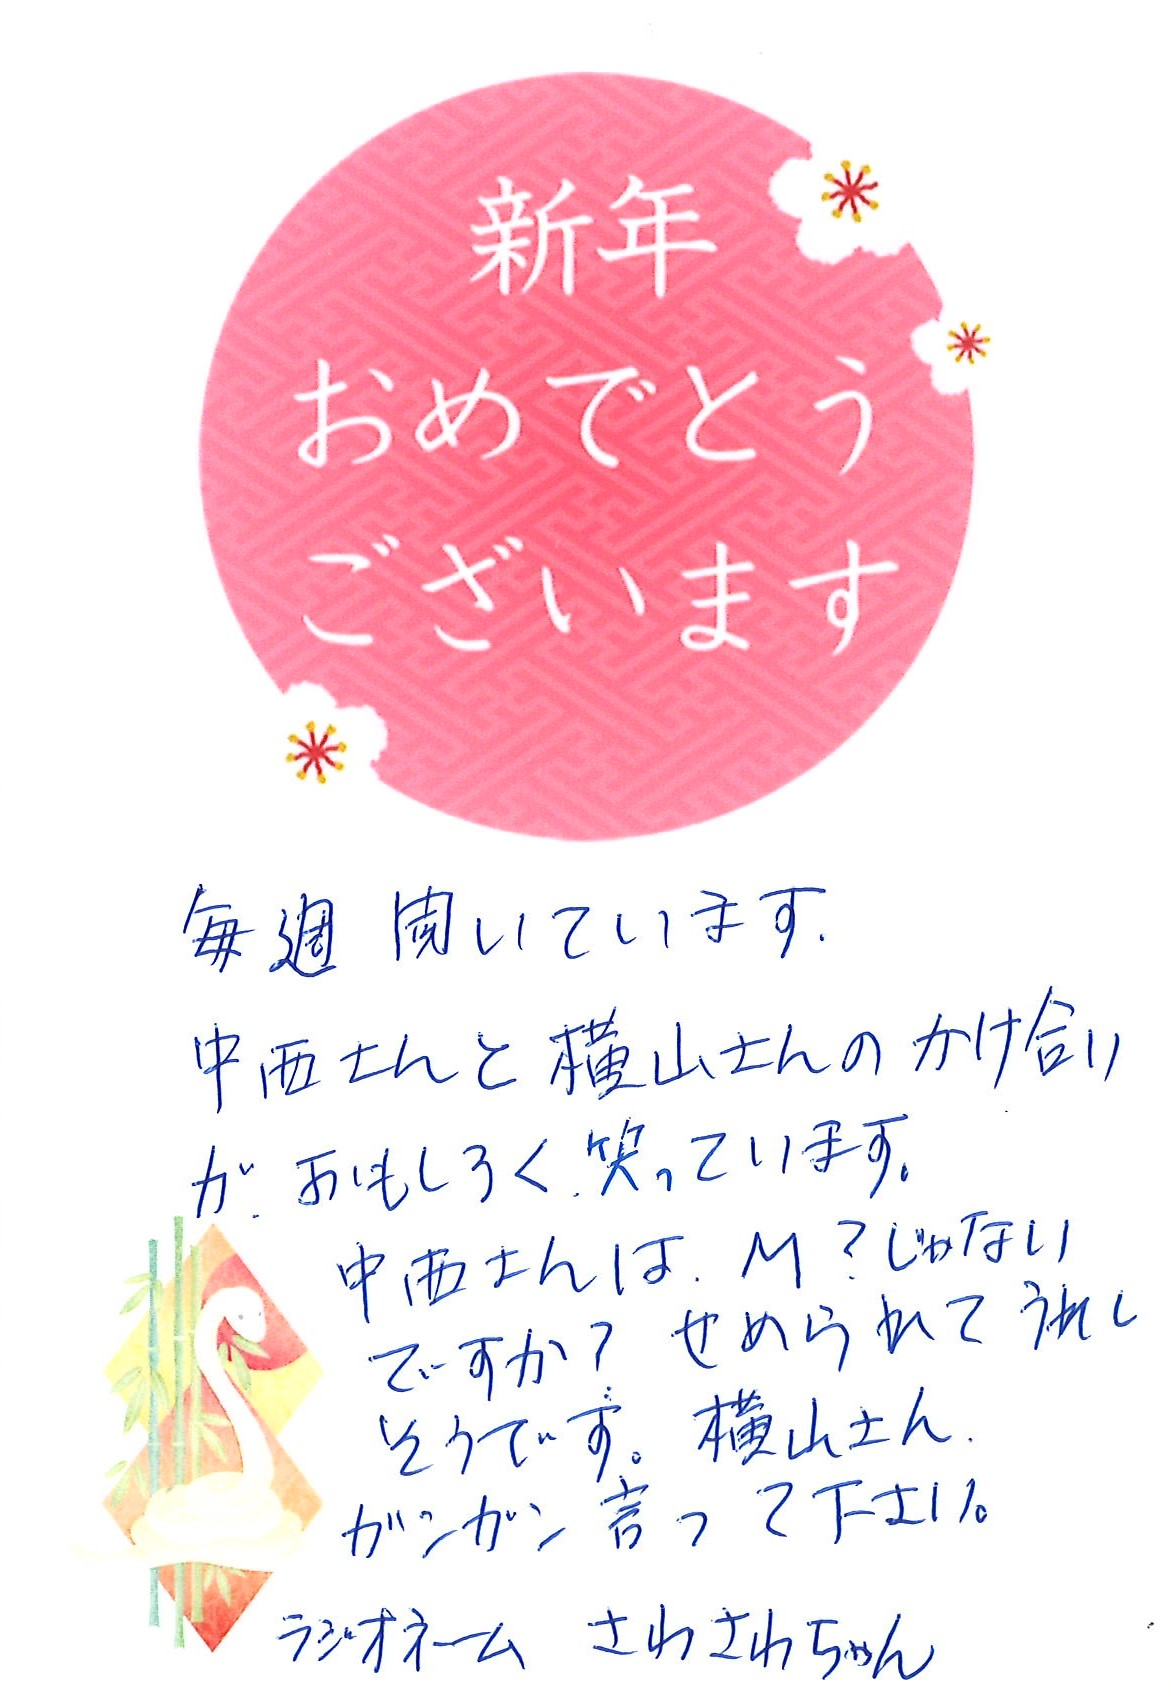 新年
おめでとう
ございます
毎週 聞いています.
中西さんと横山さんのかけ合い
が.おもしろく.笑っています。
中西さんは.M?じゃない
ですか? せめられてうれし
そうです。横山さん.
ガンガン言って下さい。
ラジオネーム さわさわちゃん